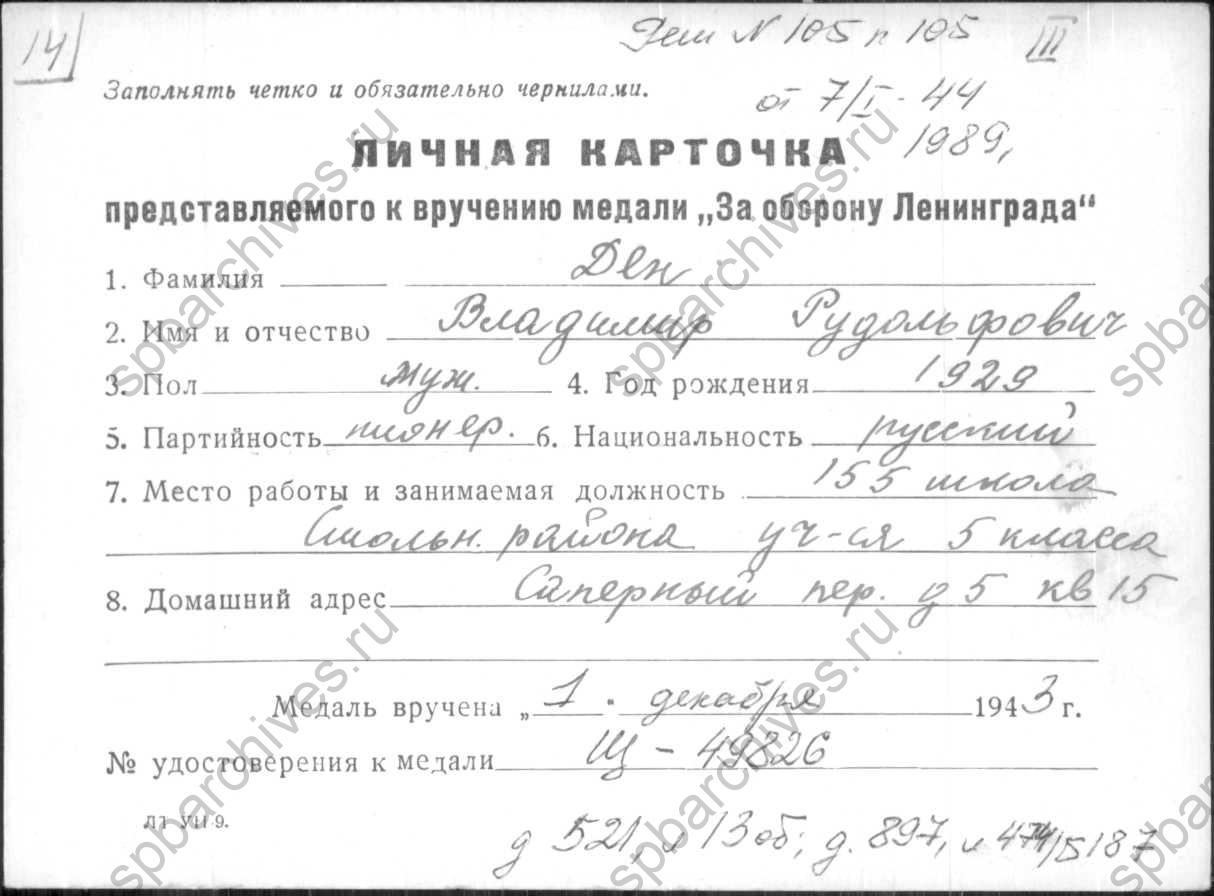 14
Реш N 105 п 105 III
Заполнять четко и обязательно чернилами.
от 7/I - 44
ЛИЧНАЯ КАРТОЧКА
1989,
представляемого к вручению медали „За оборону Ленинграда“
1. Фамилия Ден
2. Имя и отчество Владимир Рудольфович
3. Пол муж. 4. Год рождения 1929
5. Партийность пионер. 6. Национальность русский
7. Место работы и занимаемая должность 155 школа
Смольн. района уч-ся 5 класса
8. Домашний адрес Саперный пер. д 5 кв 15
Медаль вручена „ 1 " декабря 1943 г.
№ удостоверения к медали Щ - 49826
д 521, л 13 об; д. 897, л
spbarchives.ru
spbarchives.ru
spbarchives.ru
spbarchives.ru